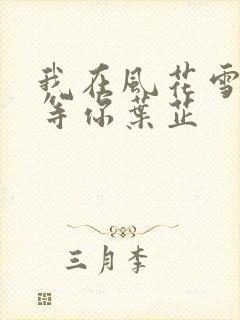 我在風花雪
等你葉芷
三月李